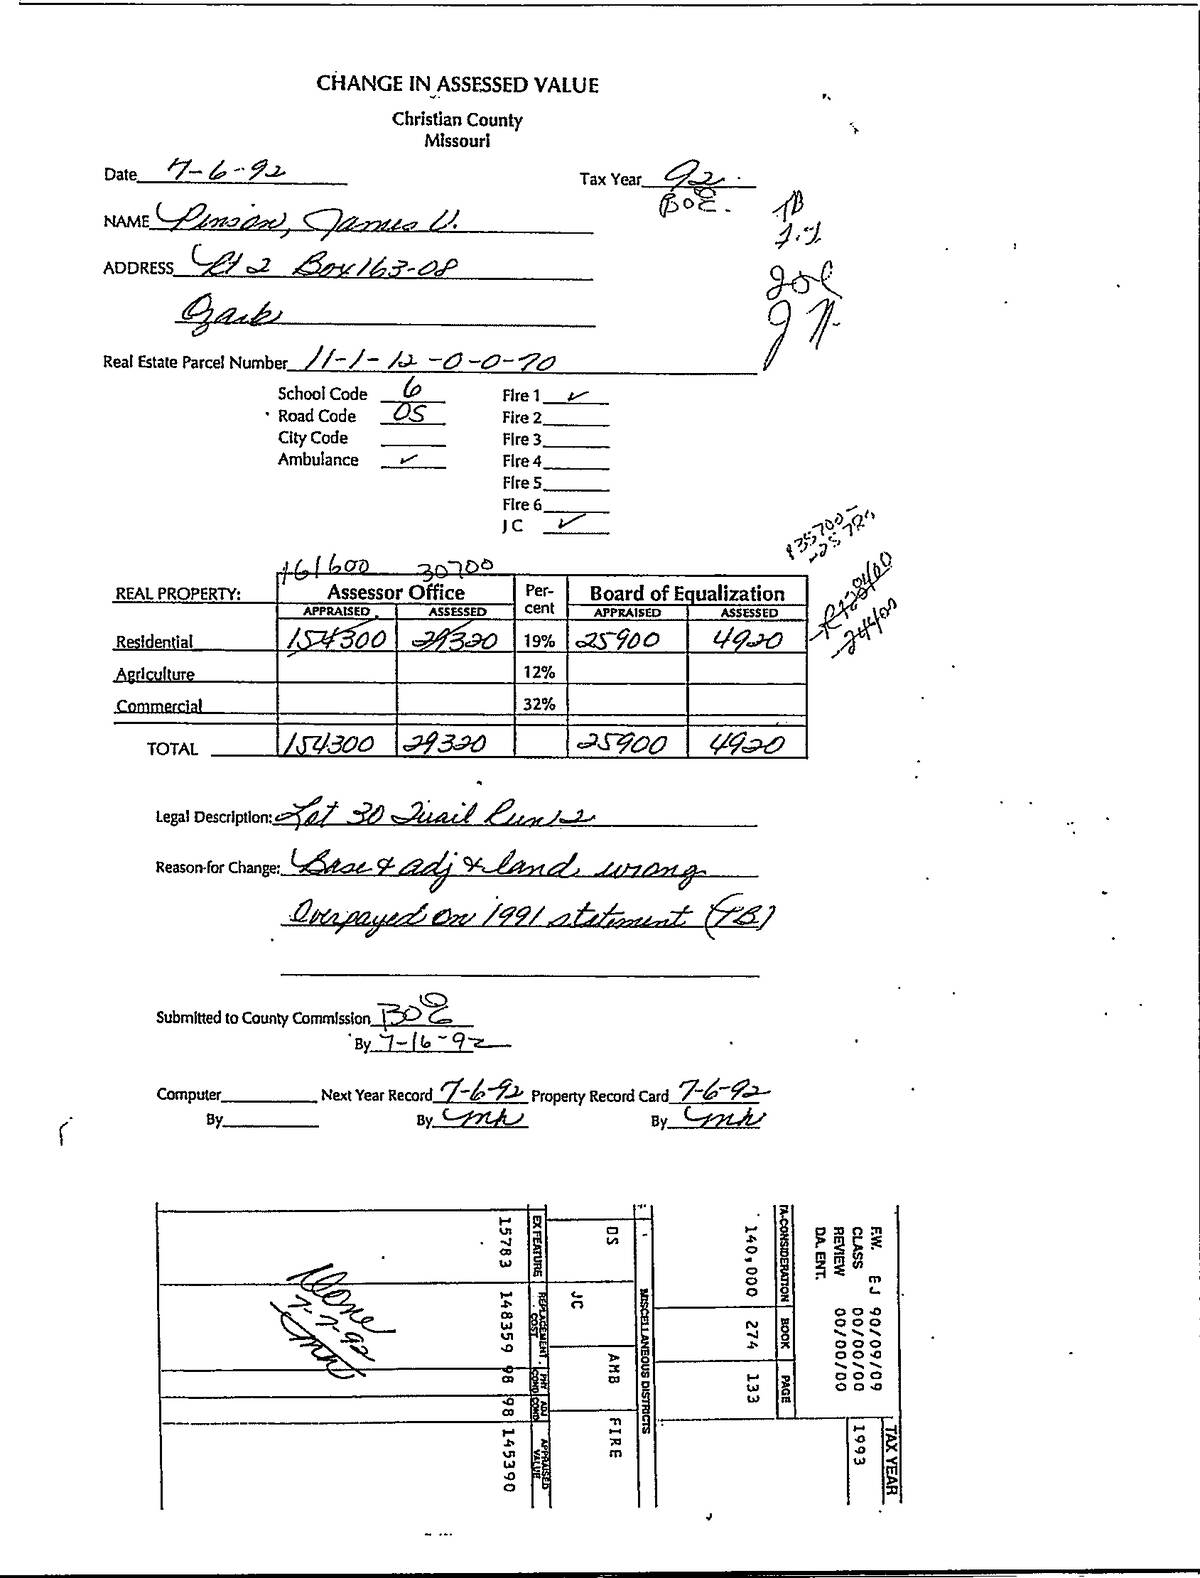 CHANGE IN ASSESSED VALUE
Christian County
Missouri
Date 7-6-92 Tax Year 92
BOE.
TB
NAME Pinson, James V.
ADDRESS Rt 2 Box 163-08
Ozark
Real Estate Parcel Number 11-1-12-0-0-70
School Code 6 Fire 1 ✓
Road Code OS Fire 2
City Code Fire 3
Ambulance ✓ Fire 4
Fire 5
Fire 6
JC ✓
161600 30700
REAL PROPERTY: Assessor Office Per-cent Board of Equalization
APPRAISED ASSESSED APPRAISED ASSESSED
Residential 154300 29320 19% 25900 4920
Agriculture 12%
Commercial 32%
TOTAL 154300 29320 25900 4920
Legal Description: Lot 30 Quail Run 2
Reason for Change: Base & adj & land wrong
Overpayed on 1991 statement (TB)
Submitted to County Commission BOE
By 7-16-92
Computer Next Year Record 7-6-92 Property Record Card 7-6-92
By By mh By mh
TAX YEAR
1993
F.W. EJ 90/09/09
CLASS 00/00/00
REVIEW 00/00/00
DA. ENT.
TA-CONSIDERATION BOOK PAGE
140,000 274 133
MISCELLANEOUS DISTRICTS
OS JC AMB FIRE
EX FEATURE REPLACEMENT COST PHY COND ADJ COND APPRAISED VALUE
15783 148359 98 98 145390
Done
7-7-92
mh